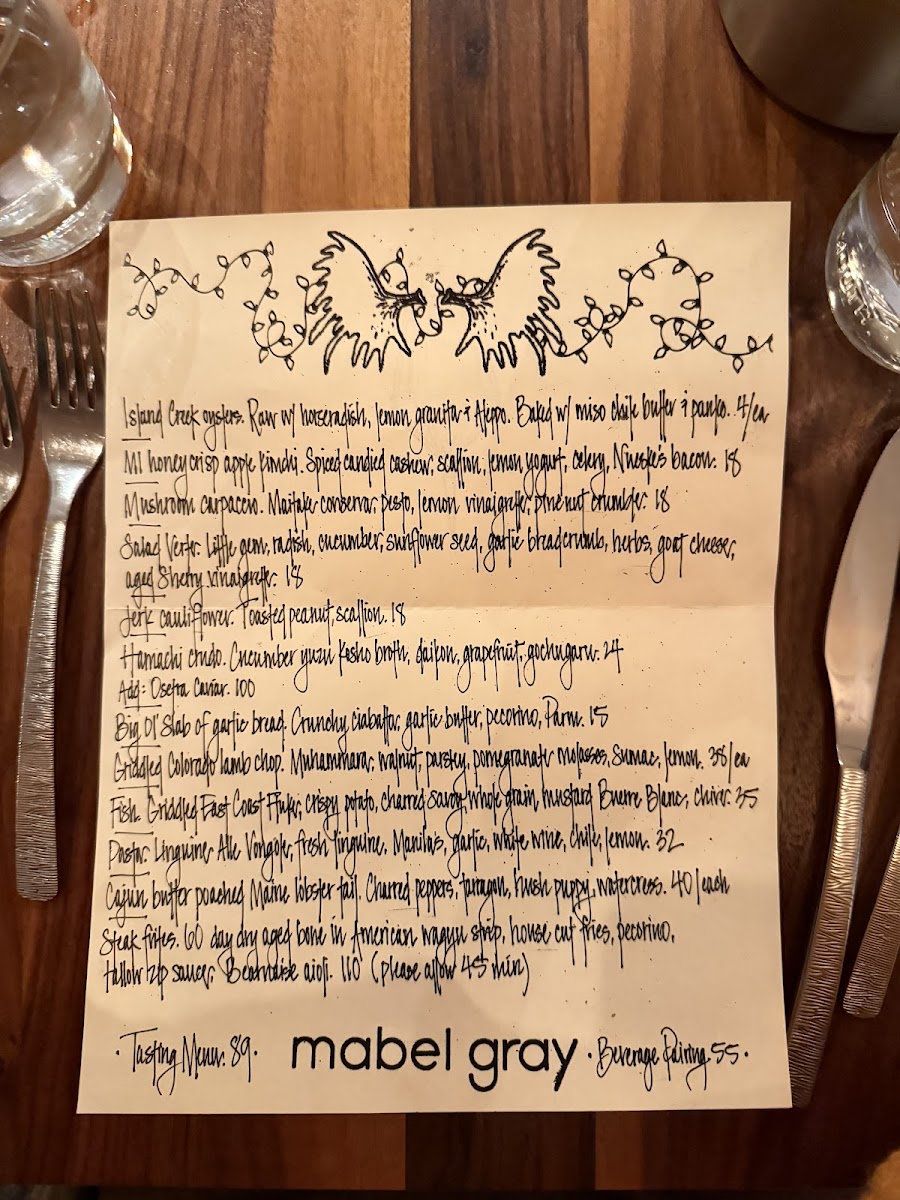 Island Creek oysters. Raw w/ horseradish, lemon granita & Aleppo. Baked w/ miso chile butter & panko. 4/ea
MI honeycrisp apple kimchi. Spiced candied cashew, scallion, lemon yogurt, celery, Nueske's bacon. 18
Mushroom carpaccio. Maitake conserva, pesto, lemon vinaigrette, pine nut crumble. 18
Salad Verte. Little gem, radish, cucumber, sunflower seed, garlic breadcrumb, herbs, goat cheese,
aged Sherry vinaigrette. 18
Jerk cauliflower. Toasted peanut, scallion. 18
Hamachi crudo. Cucumber yuzu kosho broth, daikon, grapefruit, gochugaru. 24
Add: Osetra Caviar. 100
Big Ol' Slab of garlic bread. Crunchy ciabatta, garlic butter, pecorino, Parm. 15
Griddled Colorado lamb chop. Muhammara, walnut, parsley, pomegranate molasses, Sumac, lemon. 38/ea
Fish. Griddled East Coast Fluke, crispy potato, charred savoy, whole grain mustard Buerre Blanc, chive. 35
Pasta. Linguine Alle Vongole, fresh linguine. Manila's, garlic, white wine, chile, lemon. 32
Cajun butter poached Maine lobster tail. Charred peppers, taragon, hush puppy, watercress. 40/each
Steak frites. 60 day dry aged bone in American wagyu strip, house cut fries, pecorino,
tallow zip sauce, Bearnaise aioli. 110 (please allow 45 min)
· Tasting Menu. 89 · mabel gray · Beverage Pairing. 55 ·